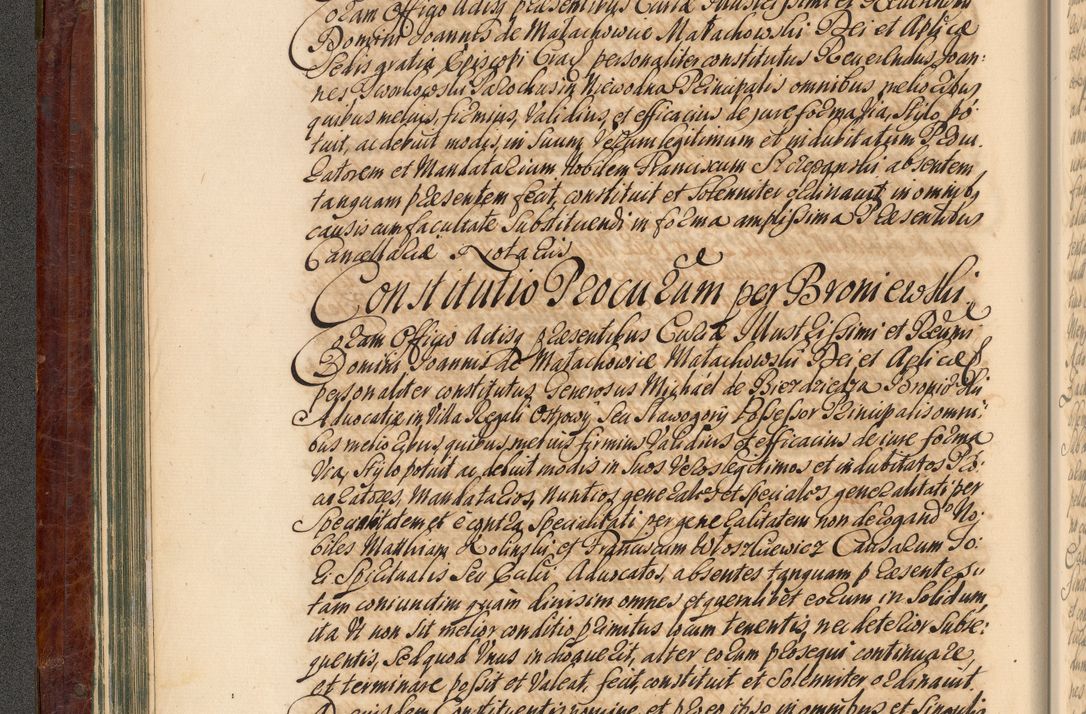 Coram Officio Actisq præsentibus Curiæ Illustrissimi et Reverendi
Domini Joannis de Małachowice Małachowski Dei et Aplicæ
Sedis gratia Episcopi Crac personaliter constitutus Reverendus Joan-
nes Dworkowski Parochus in Niewodna Principalis omnibus melioribus
quibus melius, firmius, Validius, et efficacius de jure forma Via, Stilo, po-
tuit, ac debuit modis, in Suum Verum legitimum et indubitatum Procu-
ratorem et Mandatarium Nobilem Franciscum Szczepanski absentem
tanquam præsentem fecit, constituit et Solenniter ordinavit in omnibq
causis cum facultate Substituendi in forma amplissima Præsentibus
Cancellariæ Notariis
Constitutio Procurum per Broniewski
Coram Officio Actisq præsentibus Curiæ Illustrissimi et Rndi
Domini Joannis de Małachowice Małachowski Dei et Aplicæ S
personaliter constitutus Generosus Michael de Bierdziedza Broniewski
Advocatiæ in Villa Regali Ostrowy Seu Sławogory Possessor Principalis omni-
bus melioribus quibus melius firmius Validius et efficacius de iure forma
Via, Stylo potuit ac debuit modis in Suos Veros legitimos et indubitatos Pro-
curatores, Mandatarios, Nuntios, generales et Speciales generalitati per
Specialitatem et e contra Specialitati per generalitatem non derogando No-
biles Mathiam Kolinski et Franciscum Włoszkiewicz Causarum Fo-
ri Spiritualis Seu Calvi Advocatos, absentes tanquam præsentes
tam coniunctim quam divisim omnes et quemlibet eorum in Solidum
ita Ut non Sit melior conditio primitus locum tenentis, nec deterior Subse-
quentis, Sed quod Unus inchoaverit, alter eorum prosequi continuare
et terminare possit et Valeat, fecit, constituit et Solenniter ordinavit.
Dans idem Constituens nomine et pro eo ipso in omnibus et Singulis